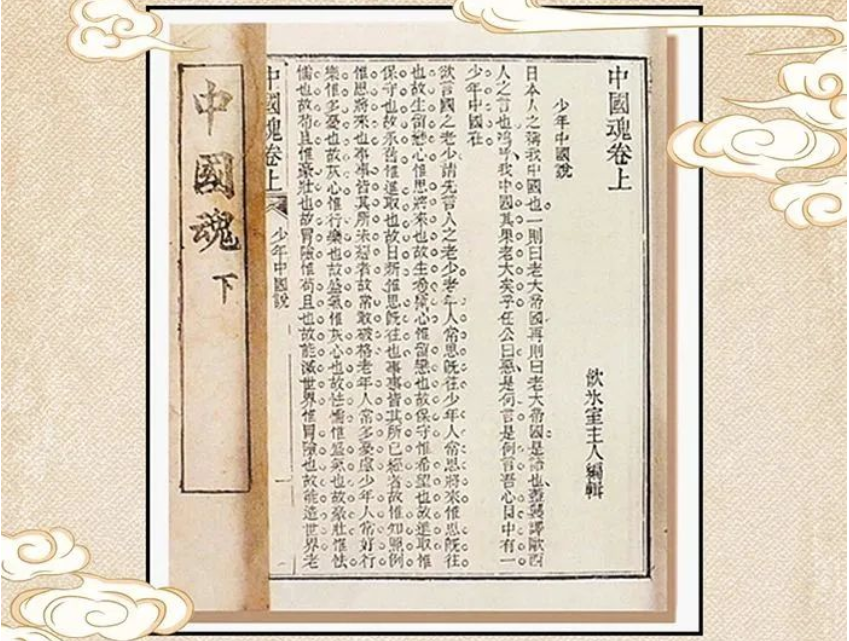 中國魂卷上
飲氷室主人編輯
少年中國說
日本人之稱我中國也一則曰老大帝國再則曰老大帝國是語也蓋襲譯歐西
人之言也嗚呼我中國其果老大矣乎任公曰惡是何言是何言吾心目中有一
少年中國在
欲言國之老少請先言人之老少老年人常思既往少年人常思將來惟思既往
也故生留戀心惟思將來也故生希望心惟留戀也故保守惟希望也故進取惟
保守也故永舊惟進取也故日新惟思既往也事事皆其所已經者故惟知照例
惟思將來也事事皆其所未經者故常敢破格老年人常多憂慮少年人常好行
樂惟多憂也故灰心惟行樂也故盛氣惟灰心也故怯懦惟盛氣也故豪壯惟怯
懦也故苟且惟豪壯也故冒險惟苟且也故能滅世界惟冒險也故能造世界老
中國魂卷上
少年中國說
一
中國魂下